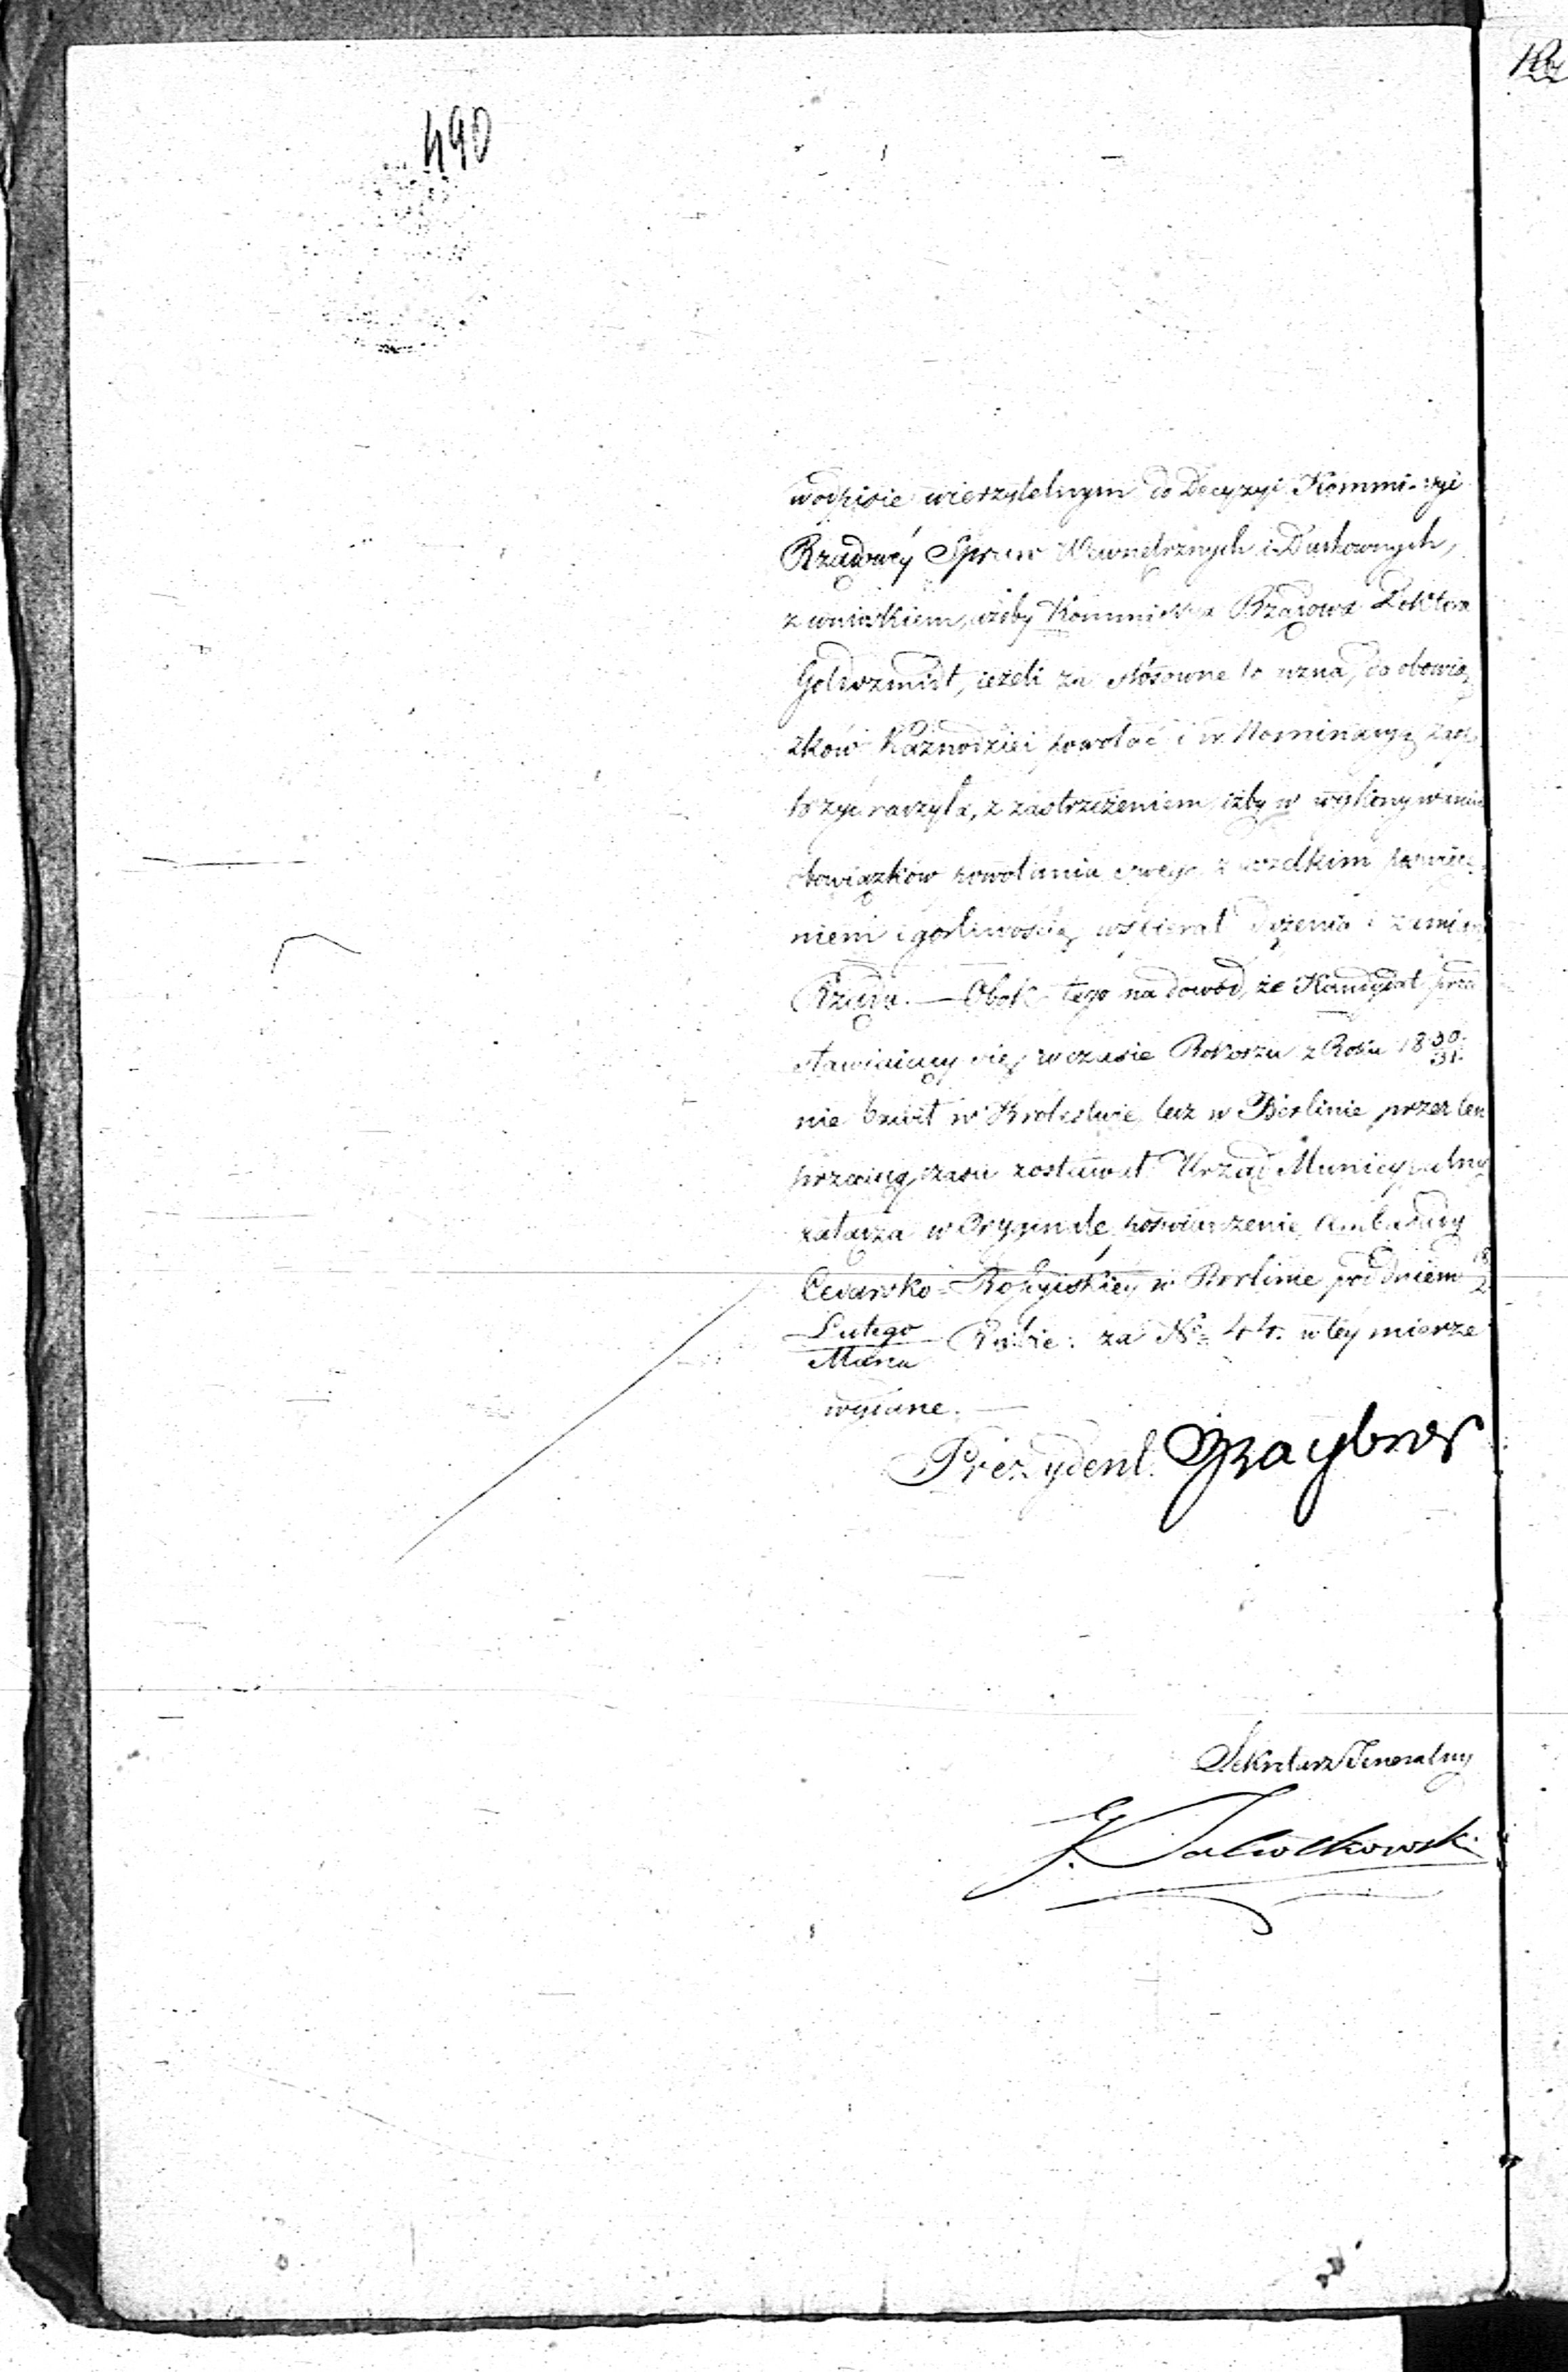 490
w odpisie wierzytelnym do Decyzyi Kommissyi
Rządowéy Spraw Wewnętrznych i Duchownych,
z wnioskiem, ażeby Kommissya Rządowa Doktora
Goldszmit, ieżeli za stósowne to uzna, do obowią,
zków Kaznodziei powołać i w Nominacyą zaopa
trzyć raczyła, z zastrzeżeniem iżby w wykonywaniu
obowiązków powołania swego z wszelkim poświęce
niem i gorliwością wspierał dążenia i zamiary
Rządu. — Obok tego na dowód, że Kandydat przed
stawiaiący się, w czasie Rokoszu z Roku 18 30/31
nie bawił w Królestwie lecz w Berlinie przez ten
przeciąg czasu zostawał Urząd Municypalny
załącza w Oryginale poświadczenie Ambasady
Cesarsko-Rossyiskiey w Berlinie pod dniem
Lutego
Marca
za No 44. w tey mierze
wydane. —
Prezydent Graybner
Sekretarz Jeneralny